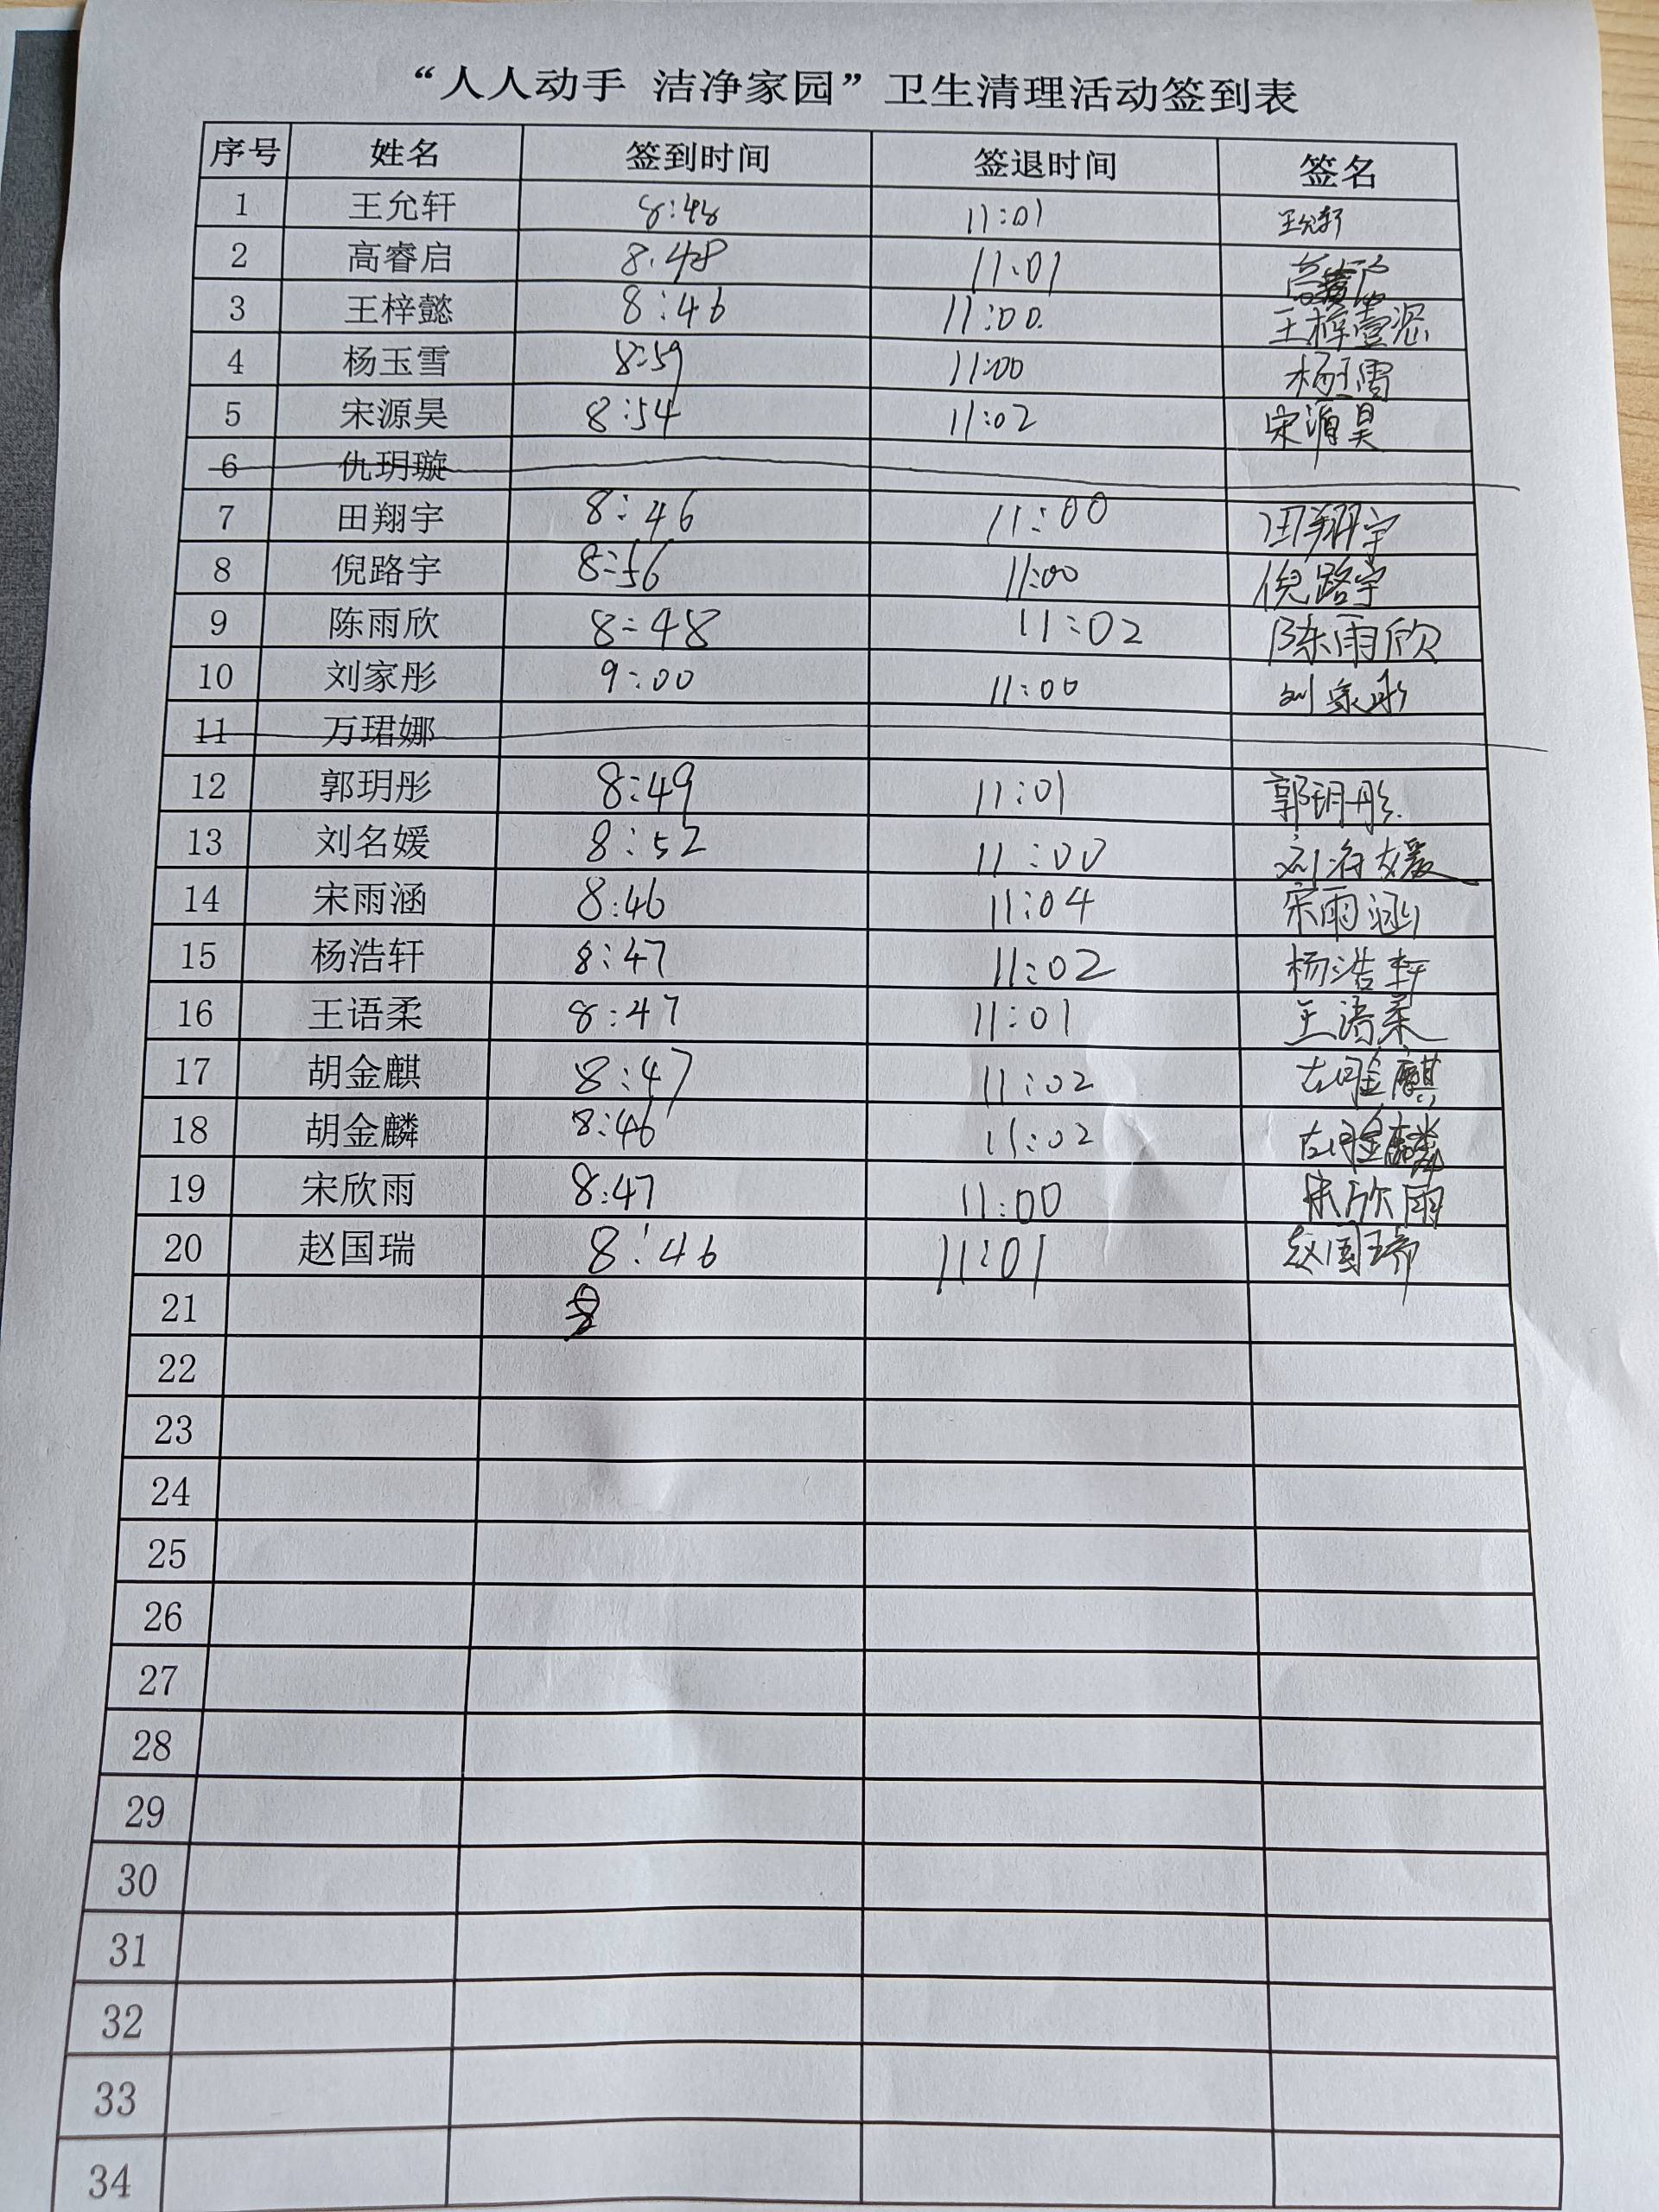 “人人动手 洁净家园”卫生清理活动签到表
序号 姓名 签到时间 签退时间 签名
1 王允轩 8:48 11:01 王允轩
2 高睿启 8.48 11:01 高睿启
3 王梓懿 8:46 11:00. 王梓懿
4 杨玉雪 8:59 11:00 杨玉雪
5 宋源昊 8:54 11:02 宋源昊
6 仇玥璇
7 田翔宇 8:46 11:00 田翔宇
8 倪路宇 8:56 11:00 倪路宇
9 陈雨欣 8:48 11:02 陈雨欣
10 刘家彤 9:00 11:00 刘家彤
11 万珺娜
12 郭玥彤 8:49 11:01 郭玥彤
13 刘名媛 8:52 11:00 刘名媛
14 宋雨涵 8:46 11:04 宋雨涵
15 杨浩轩 8:47 11:02 杨浩轩
16 王语柔 8:47 11:01 王语柔
17 胡金麒 8:47 11:02 胡金麒
18 胡金麟 8:46 11:02 胡金麟
19 宋欣雨 8:47 11:00 宋欣雨
20 赵国瑞 8:46 11:01 赵国瑞
21
22
23
24
25
26
27
28
29
30
31
32
33
34